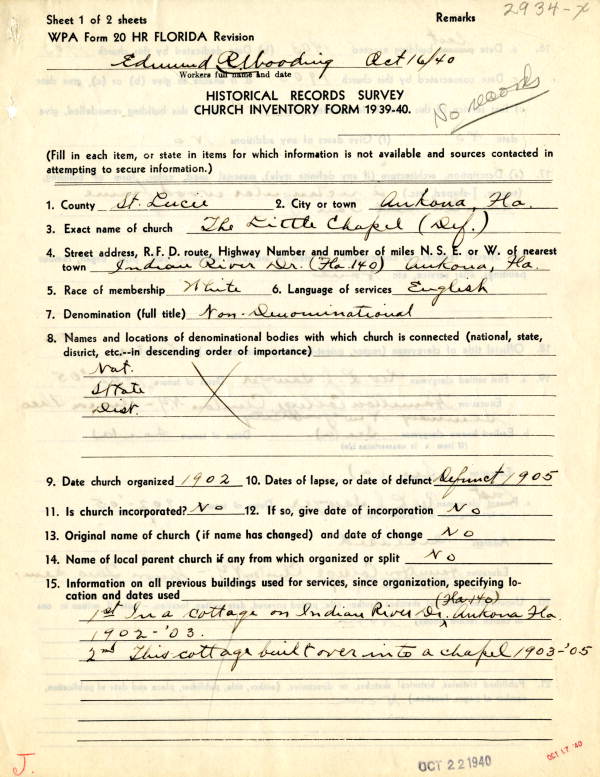 Sheet 1 of 2 sheets
Remarks
2934-X
WPA Form 20 HR FLORIDA Revision
Edmund R. Wooding Oct 16/40
Workers full name and date
HISTORICAL RECORDS SURVEY
CHURCH INVENTORY FORM 1939-40.
No records
(Fill in each item, or state in items for which information is not available and sources contacted in
attempting to secure information.)
1. County St. Lucie 2. City or town Ankona, Fla.
3. Exact name of church The Little Chapel (Def.)
4. Street address, R.F.D. route, Highway Number and number of miles N. S. E. or W. of nearest
town Indian River Dr. (Fla. 140) Ankona, Fla.
5. Race of membership White 6. Language of services English
7. Denomination (full title) Non-Denominational
8. Names and locations of denominational bodies with which church is connected (national, state,
district, etc.--in descending order of importance)
Nat.
State
Dist.
9. Date church organized 1902 10. Dates of lapse, or date of defunct Defunct 1905
11. Is church incorporated? No 12. If so, give date of incorporation No
13. Original name of church (if name has changed) and date of change No
14. Name of local parent church if any from which organized or split No
15. Information on all previous buildings used for services, since organization, specifying lo-
cation and dates used
1st In a cottage on Indian River Dr. (Fla. 140) Ankona Fla.
1902-'03.
2nd This cottage built over into a chapel 1903-'05
J.
OCT 22 1940
OCT 17 '40